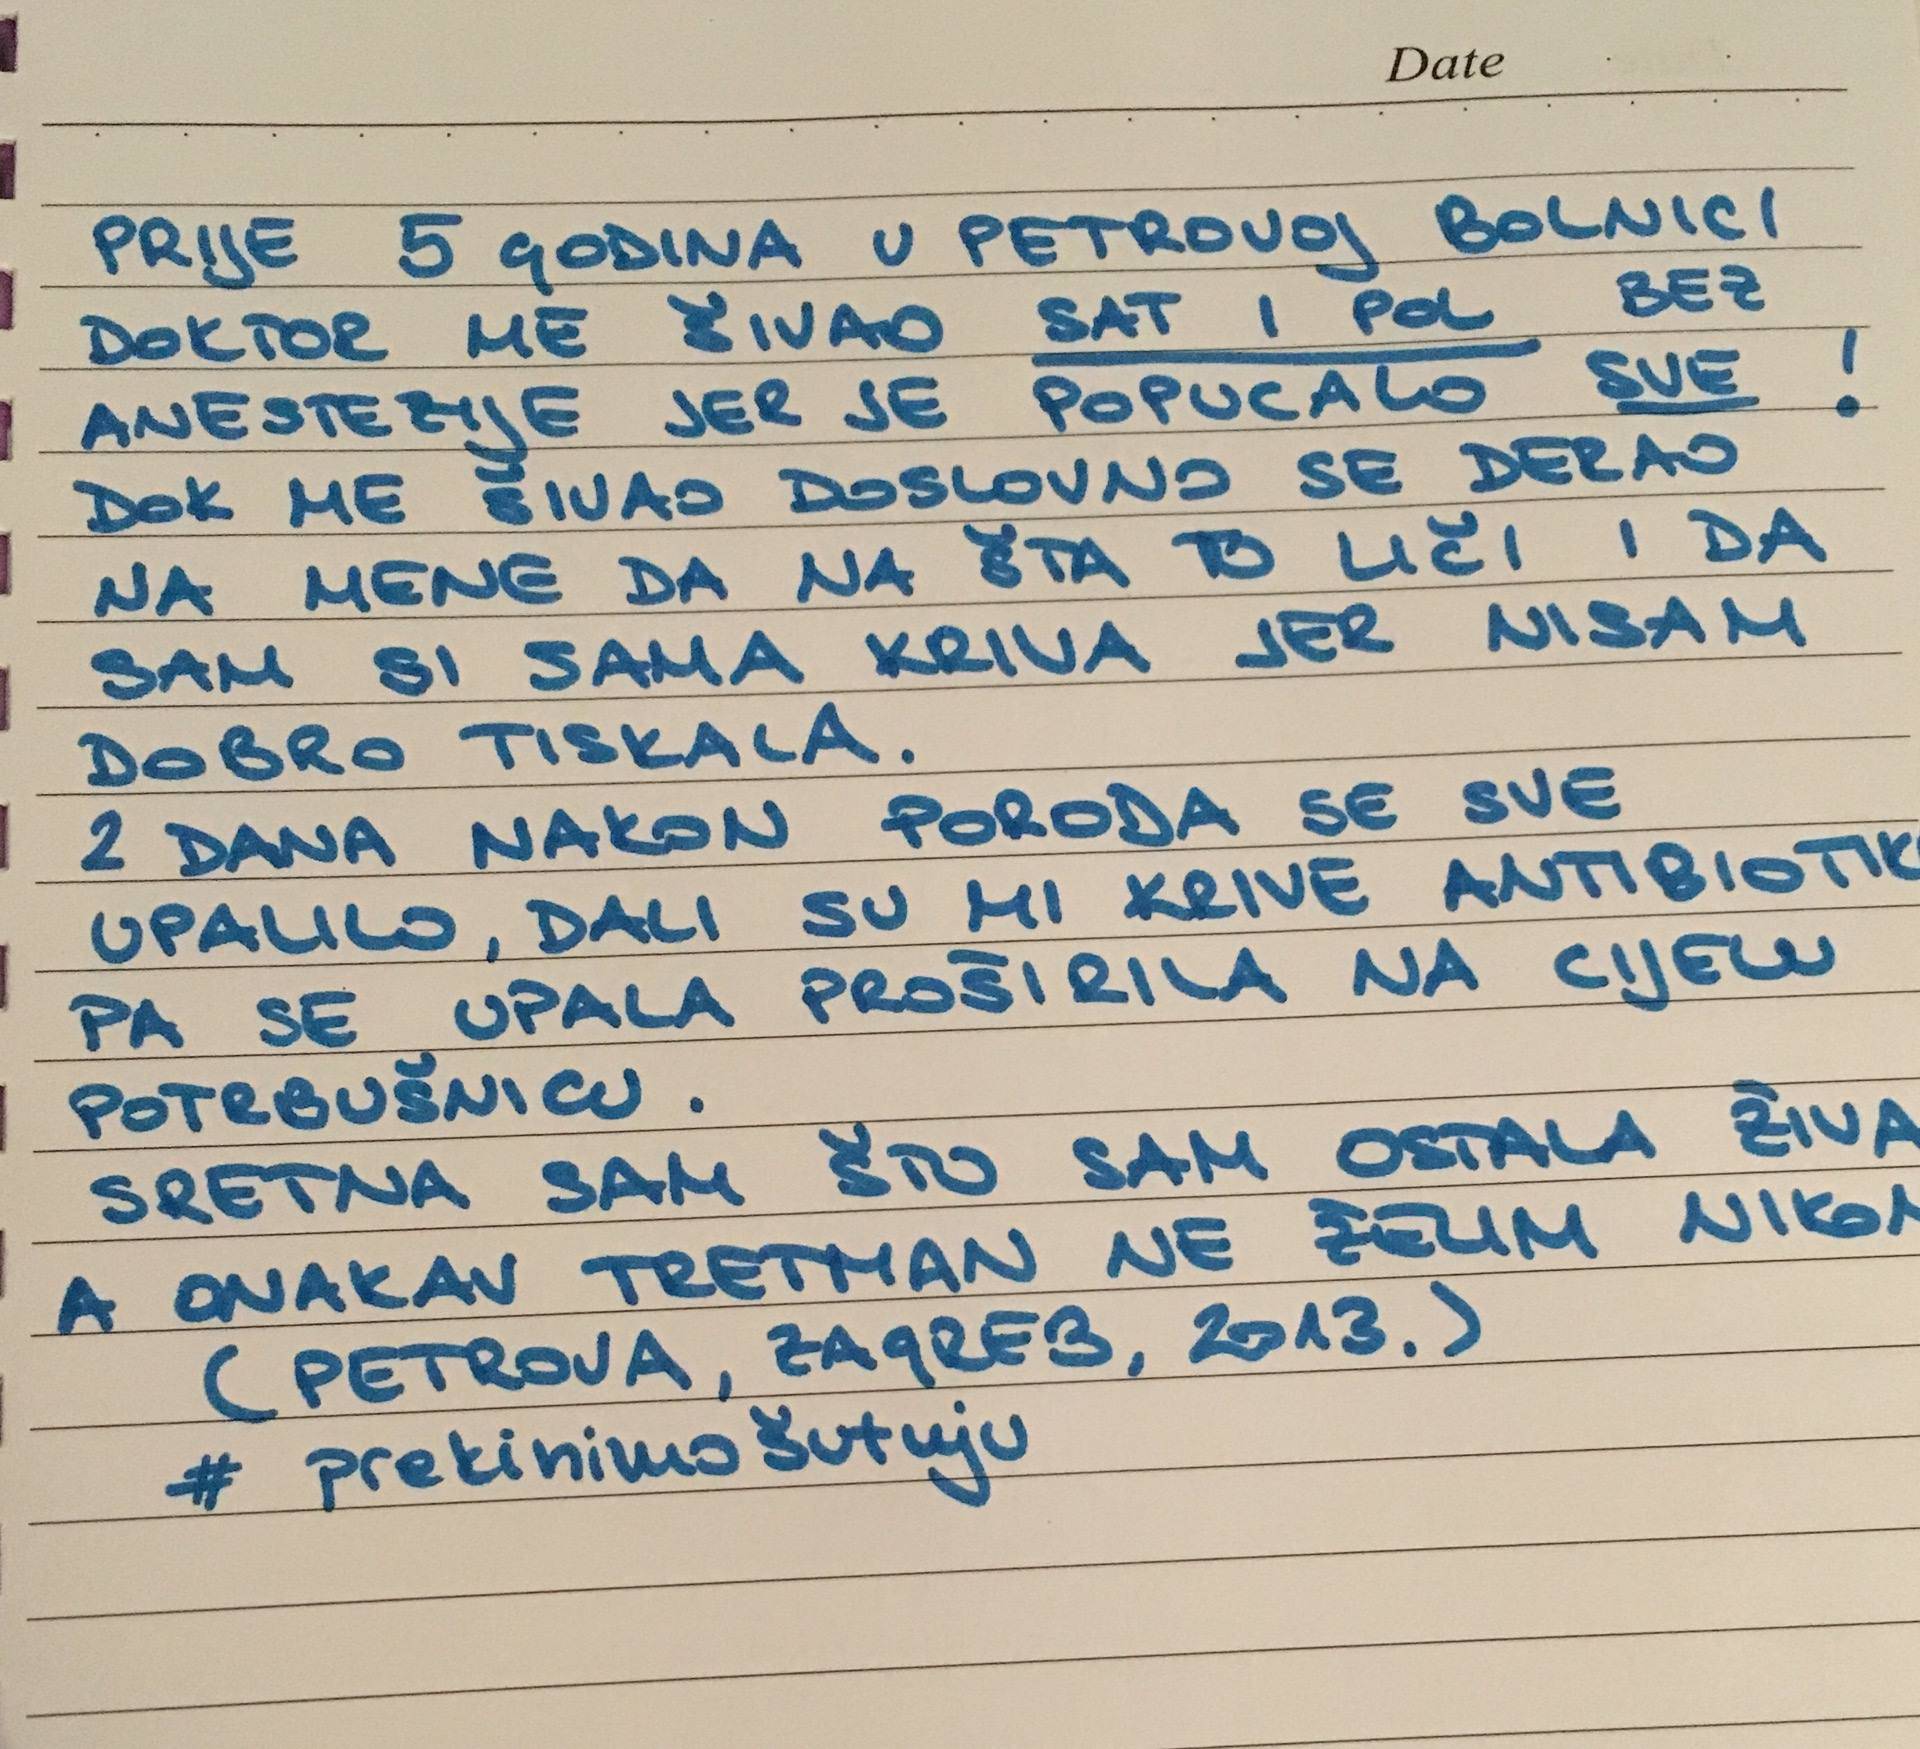 Date
PRIJE 5 GODINA U PETROVOJ BOLNICI
DOKTOR ME ŠIVAO SAT I POL BEZ
ANESTEZIJE JER JE POPUCALO SVE!
DOK ME ŠIVAO DOSLOVNO SE DERAO
NA MENE DA NA ŠTA TO LIČI I DA
SAM SI SAMA KRIVA JER NISAM
DOBRO TISKALA.
2 DANA NAKON PORODA SE SVE
UPALILO, DALI SU MI KRIVE ANTIBIOTIK
PA SE UPALA PROŠIRILA NA CIJELU
POTRBUŠNICU.
SRETNA SAM ŠTO SAM OSTALA ŽIVA
A ONAKAV TRETMAN NE ŽELIM NIKOM
(PETROVA, ZAGREB, 2013.)
# prekinimo šutnju